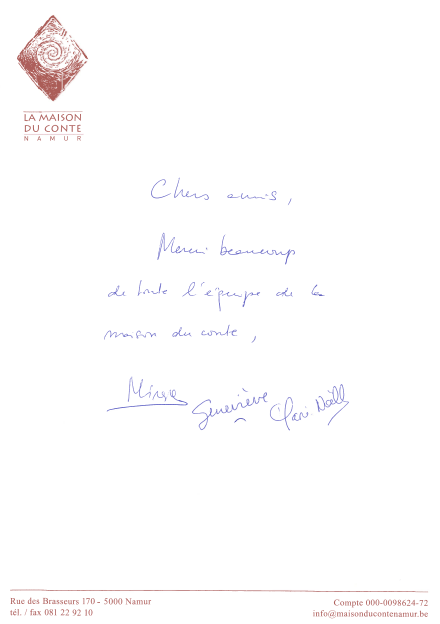 LA MAISON
DU CONTE
NAMUR
Chers amis,
Merci beaucoup
de toute l'équipe de la
maison du conte,
Geneviève
Rue des Brasseurs 170 - 5000 Namur
tél. / fax 081 22 92 10
Compte 000-0098624-72
info@maisonducontenamur.be